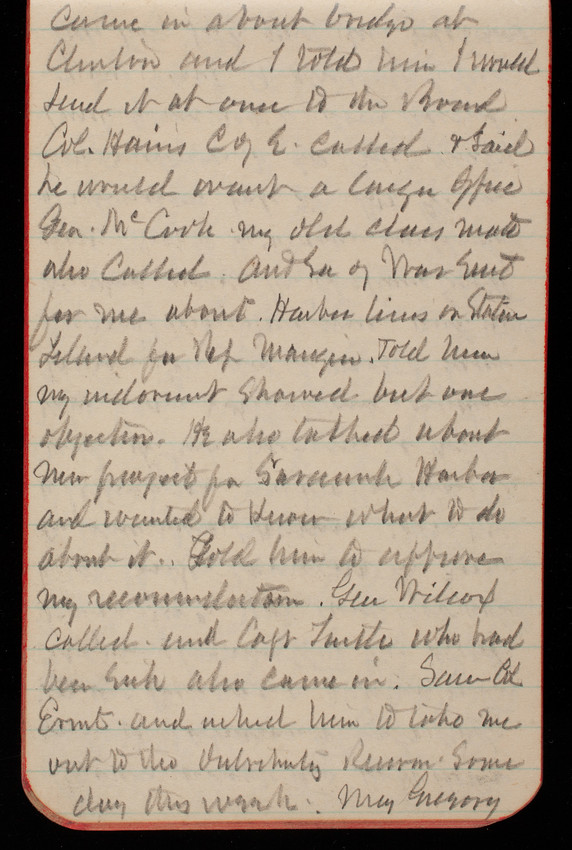 came in about bridge at
Clinton and I told him I would
send it at once to the Board
Col. Hains C of E. called & said
he would want a large office
Gen. McCook my old class mate
also called. And Sec of War sent
for me about. Harbor lines on Staten
Island for Rep Mangin. Told him
my indorsmt showed but one
objection. He also talked about
new project for Savannah Harbor
and wanted to know what to do
about it. Told him to approve
my recomendation. Gen Wilcox
called. and Capt Tuttle who had
been sick also came in. Saw Col
Ernst. and asked him to take me
out to the Distributing Reservr. Some
day this week. May Gregory